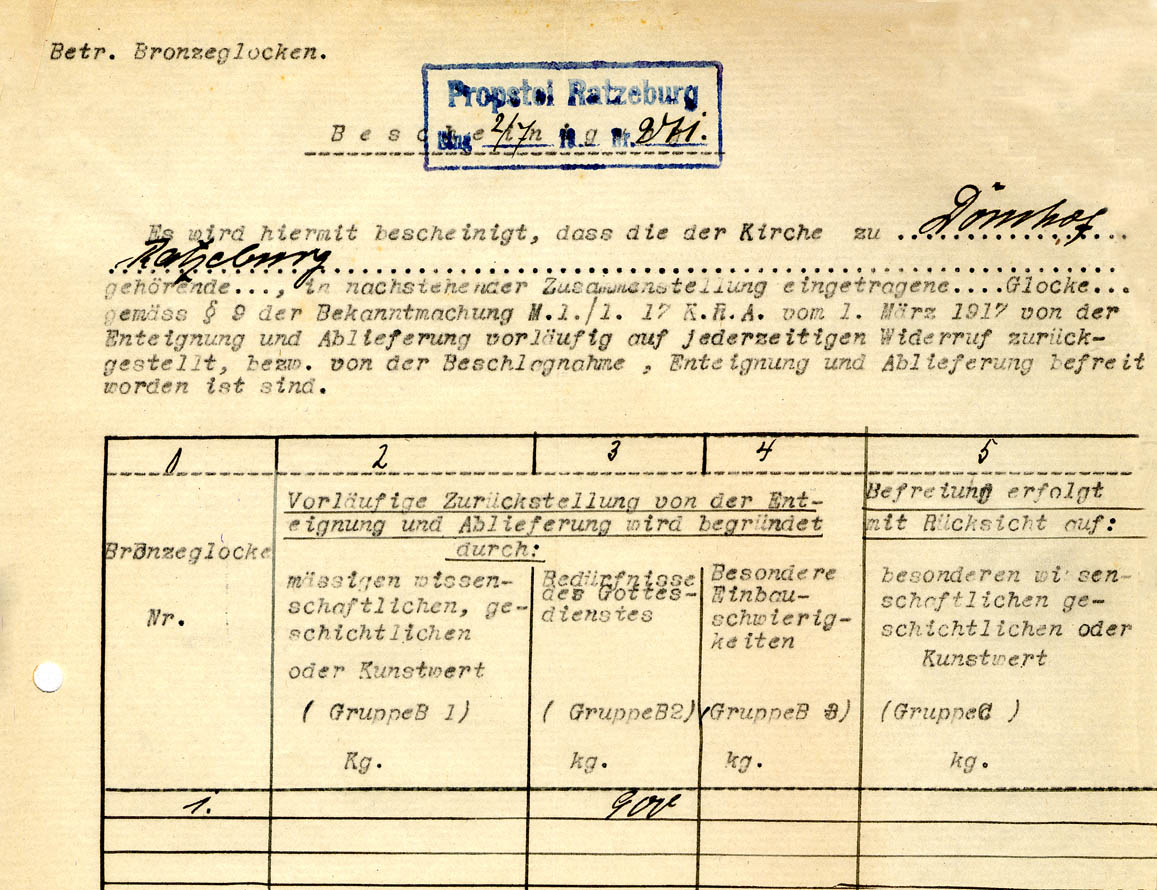 Betr. Bronzeglocken.
Propstei Ratzeburg
Bescheinigung
Eing 2/7 19 Nr.
Es wird hiermit bescheinigt, dass die der Kirche zu ..Domhof...
..Ratzeburg..............................
gehörende..., in nachstehender Zusammenstellung eingetragene....Glocke...
gemäss § 9 der Bekanntmachung M.1./1. 17 K.R.A. vom 1. März 1917 von der
Enteignung und Ablieferung vorläufig auf jederzeitigen Widerruf zurück-
gestellt, bezw. von der Beschlagnahme , Enteignung und Ablieferung befreit
worden ist sind.
1 2 3 4 5
Vorläufige Zurückstellung von der Ent-
eignung und Ablieferung wird begründet
durch:
Befreiung erfolgt
mit Rücksicht auf:
Bronzeglocke
Nr.
mässigen wissen-
schaftlichen, ge-
schichtlichen
oder Kunstwert
( GruppeB 1)
Kg.
Bedürfnisse
des Gottes-
dienstes
( GruppeB2)
kg.
Besondere
Einbau-
schwierig-
keiten
(GruppeB 3)
kg.
besonderen wissen-
schaftlichen ge-
schichtlichen oder
Kunstwert
(GruppeC )
kg.
1. 900